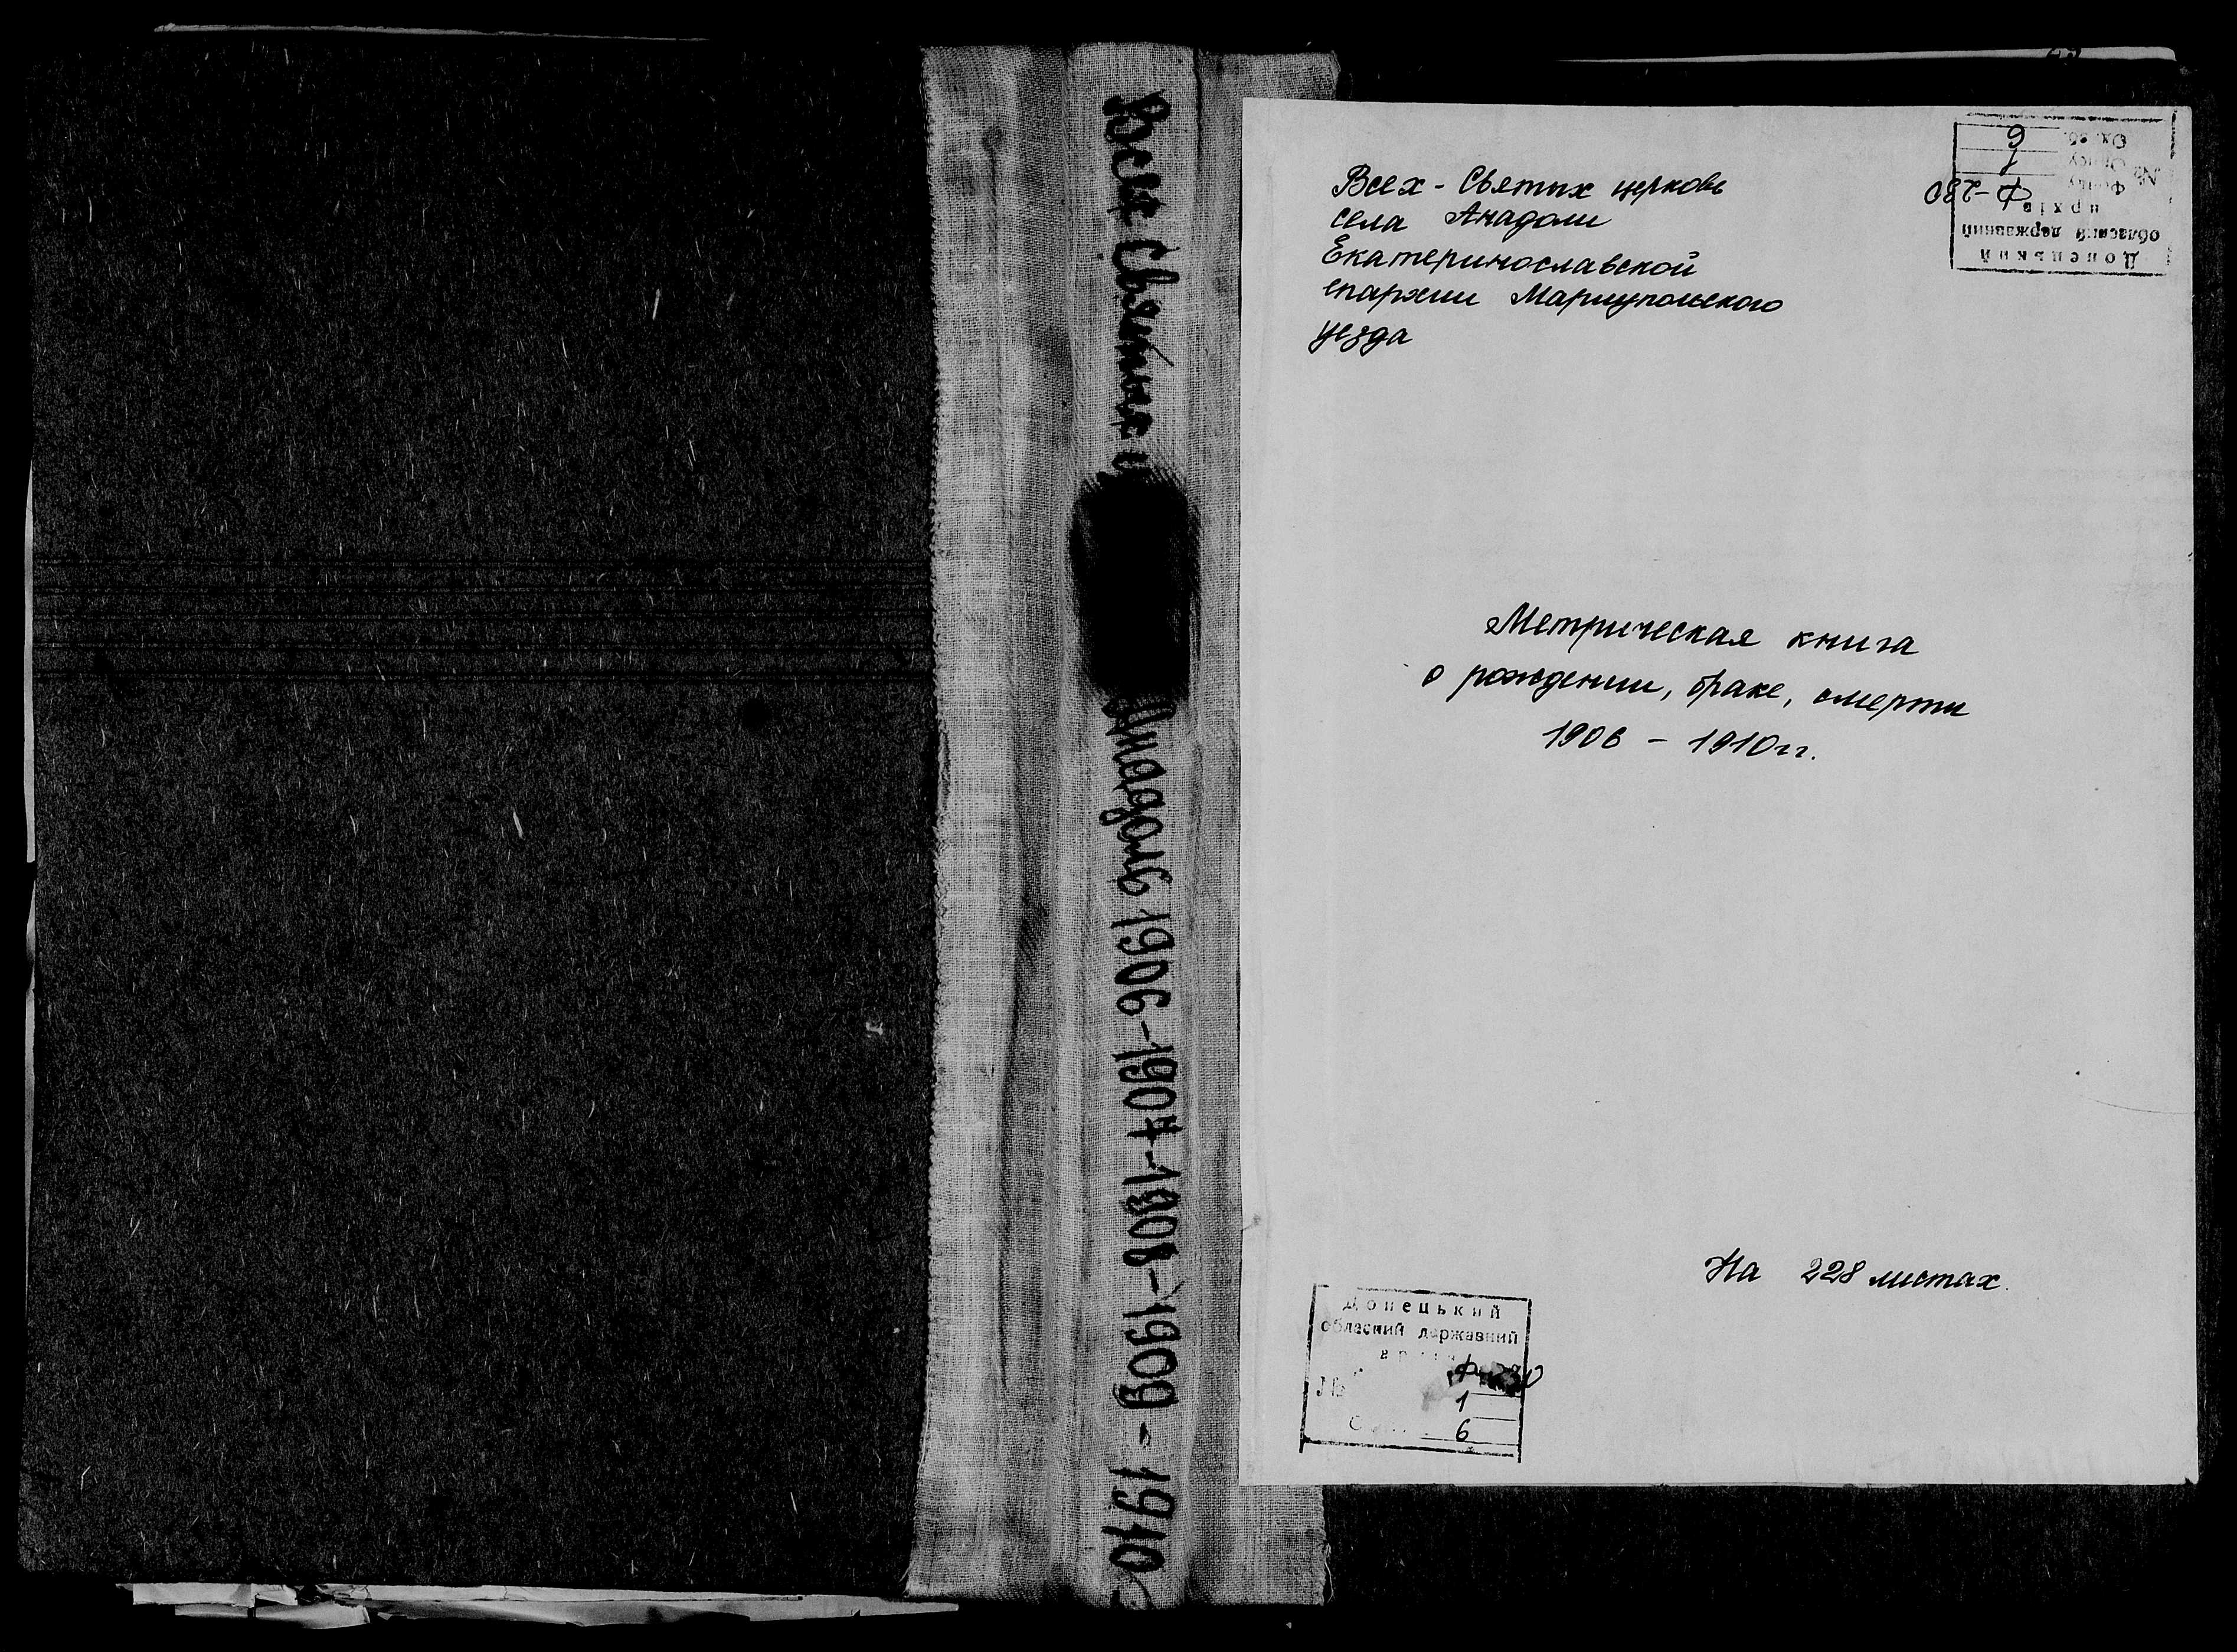 Всех Святых ц
Анадоль 1906-1907-1908-1909-1910
Всех-Святых церковь
села Анадоли
Екатеринославской
епархии Мариупольского
уезда
Донецький
обласний державний
архів
№ Фонду Ф-230
Опису 1
Од. зб. 6
Метрическая книга
о рождении, браке, смерти
1906 - 1910 гг.
На 228 листах.
Донецький
обласний державний
№
1
6